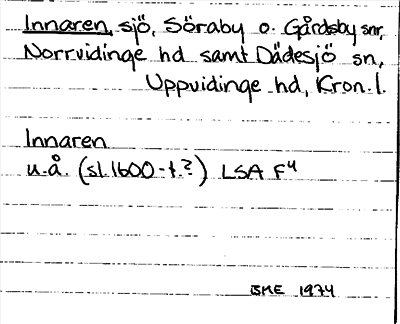 Innaren, sjö, Söraby o. Gårdsby snr,
Norrvidinge hd samt Dädesjö sn,
Uppvidinge hd, Kron. l.
Innaren
u.å. (sl. 1600-t.?) LSA F4
BME 1974